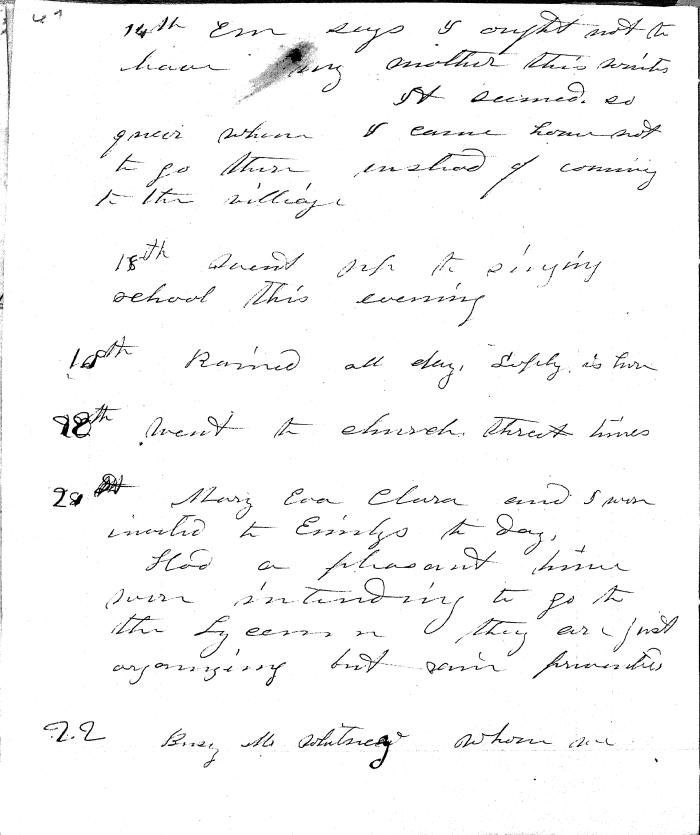 14th Em says I ought not to
have my mother this winter
It seemed so
queer when I came home not
to go there instead of coming
to the village
15th went up to singing
school this evening
16th Rained all day.
18th went to church three times
20 Mary Eva Clara and I were
invited to Emilys to day,
Had a pleasant time
were intending to go to
the Lyceum they are just
organizing but rain prevented
22 Busy Mr Whitney whom we